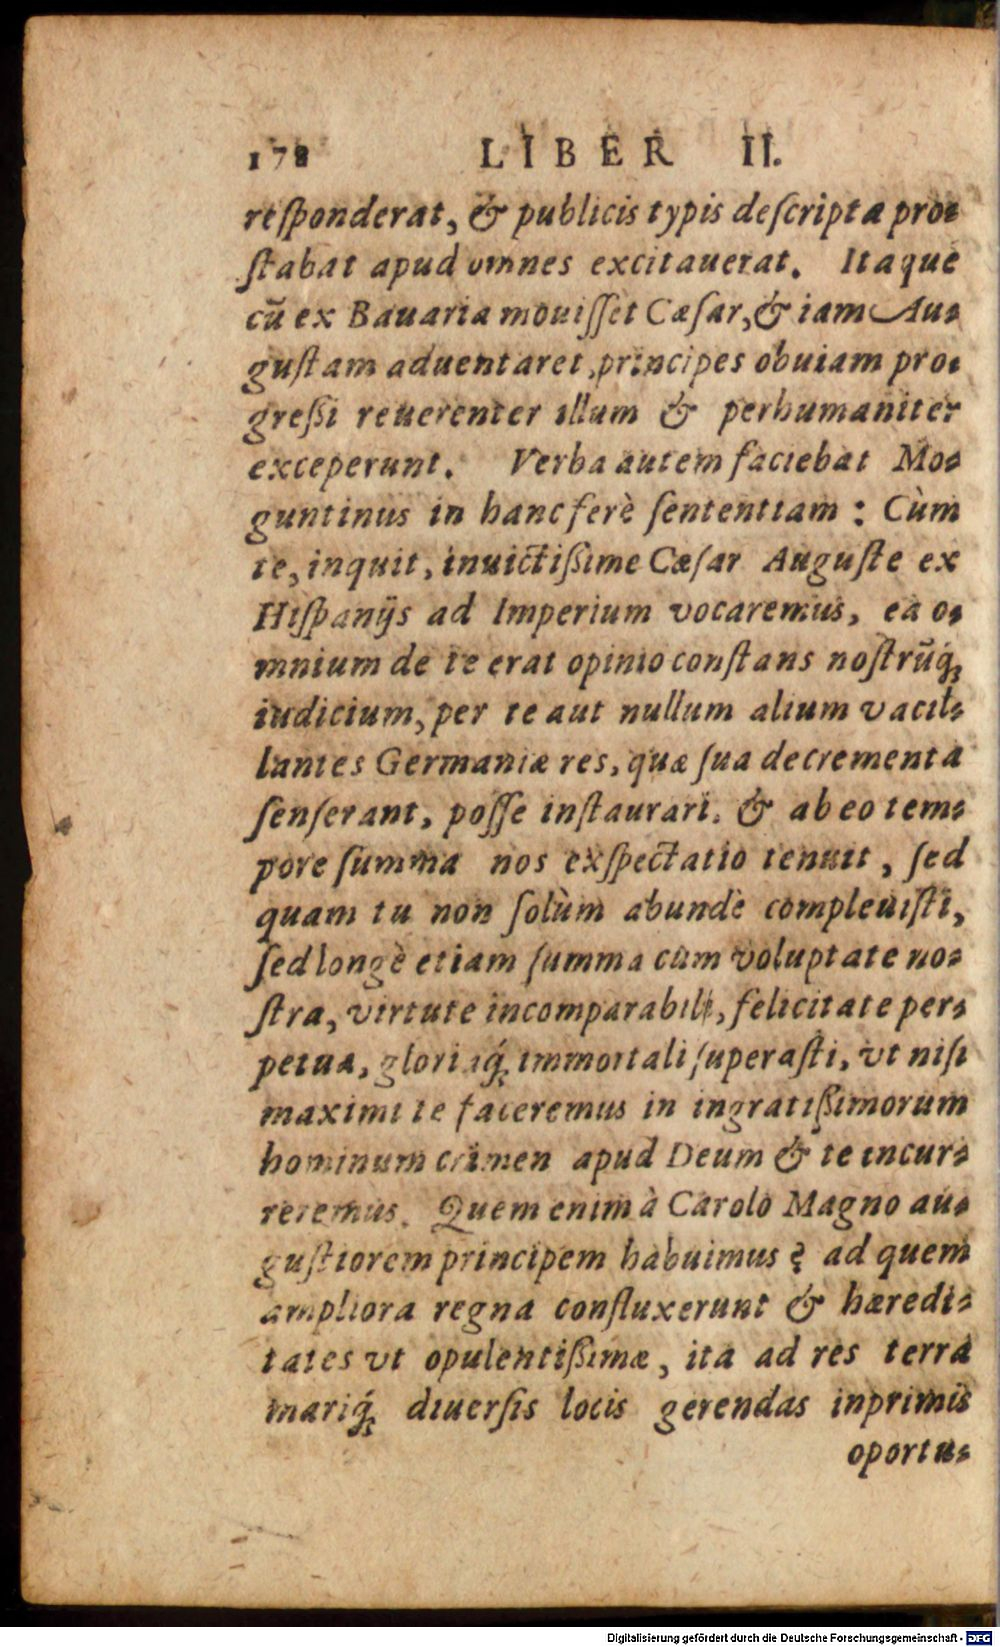 178 LIBER II.
reſponderat, & publicis typis deſcripta pro-
ſtabat apud omnes excitauerat. Itaque
cū ex Bauaria mouiſſet Cæſar, & iam Au-
guſtam aduentaret, principes obuiam pro-
greßi reuerenter illum & perhumaniter
exceperunt. Verba autem faciebat Mo-
guntinus in hanc ferè ſententiam: Cùm
te, inquit, inuictißime Cæſar Auguſte ex
Hiſpanijs ad Imperium vocaremus, ea o-
mnium de te erat opinio conſtans noſtrūq́;
iudicium, per te aut nullum alium vacil-
lantes Germaniæ res, quæ ſua decrementa
ſenſerant, poſſe inſtaurari. & ab eo tem-
pore ſumma nos exſpectatio tenuit, ſed
quam tu non ſolùm abundè compleuiſti,
ſed longè etiam ſumma cum voluptate no-
ſtra, virtute incomparabili, felicitate per-
petua, gloriaq́; immortali ſuperaſti, vt niſi
maximi te faceremus in ingratißimorum
hominum crimen apud Deum & te incur-
reremus. Quem enim à Carolo Magno au-
guſtiorem principem habuimus? ad quem
ampliora regna confluxerunt & hæredi-
tates vt opulentißimæ, ita ad res terra
mariq́; diuerſis locis gerendas inprimis
oportu-
Digitalisierung gefördert durch die Deutsche Forschungsgemeinschaft - DFG